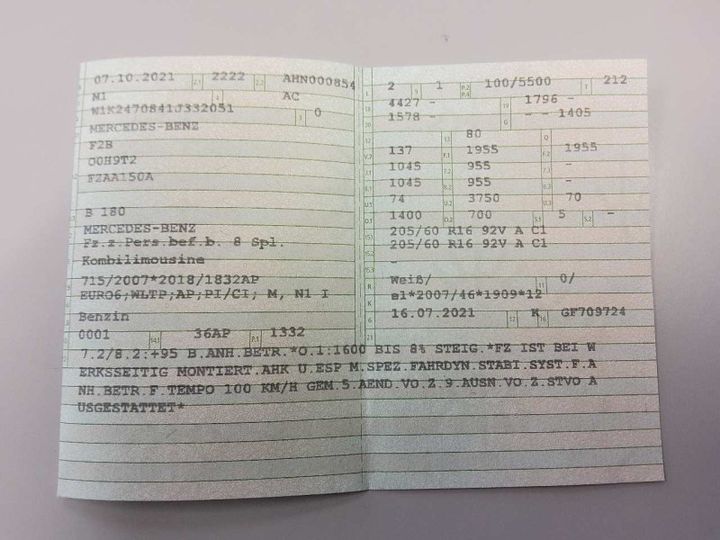 07.10.2021 2.1 2222 2.2 AHN000854
M1 4 AC
W1K2470841J332051 3 0
MERCEDES-BENZ
F2B
O0H9T2
FZAA150A
B 180
MERCEDES-BENZ
Fz.z.Pers.bef.b. 8 Spl.
Kombilimousine
715/2007*2018/1832AP
EURO6;WLTP;AP;PI/CI; M, N1 I
Benzin
0001 14.1 36AP P.1 1332
L 2 9 1 P.2 P.4 100/5500 T 212
18 4427 - 19 1796 -
20 1578 - G - - 1405
12 13 80 Q
V.7 137 F.1 1955 F.2 1955
7.1 1045 7.2 955 7.3 -
8.1 1045 8.2 955 8.3 -
U.1 74 U.2 3750 U.3 70
O.1 1400 O.2 700 S.1 5 S.2 -
15.1 205/60 R16 92V A C1
15.2 205/60 R16 92V A C1
15.3 -
R Weiß/ 11 0/
K e1*2007/46*1909*12
6 16.07.2021 17 K 16 GF709724
21
7.2/8.2:+95 B.ANH.BETR.*O.1:1600 BIS 8% STEIG.*FZ IST BEI W
ERKSSEITIG MONTIERT.AHK U.ESP M.SPEZ.FAHRDYN.STABI.SYST.F.A
NH.BETR.F.TEMPO 100 KM/H GEM.5.AEND.VO.Z.9.AUSN.VO.Z.STVO A
USGESTATTET*